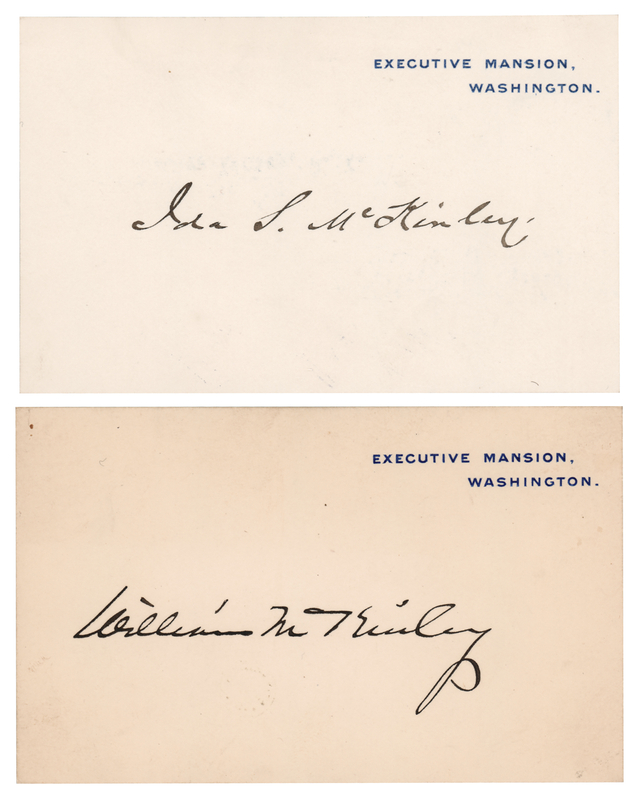 EXECUTIVE MANSION,
WASHINGTON.
Ida S. McKinley.
EXECUTIVE MANSION,
WASHINGTON.
William McKinley